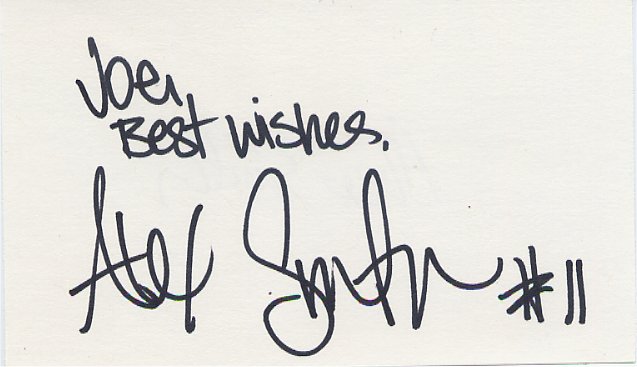 Joe,
Best wishes,
Alex Smith #11